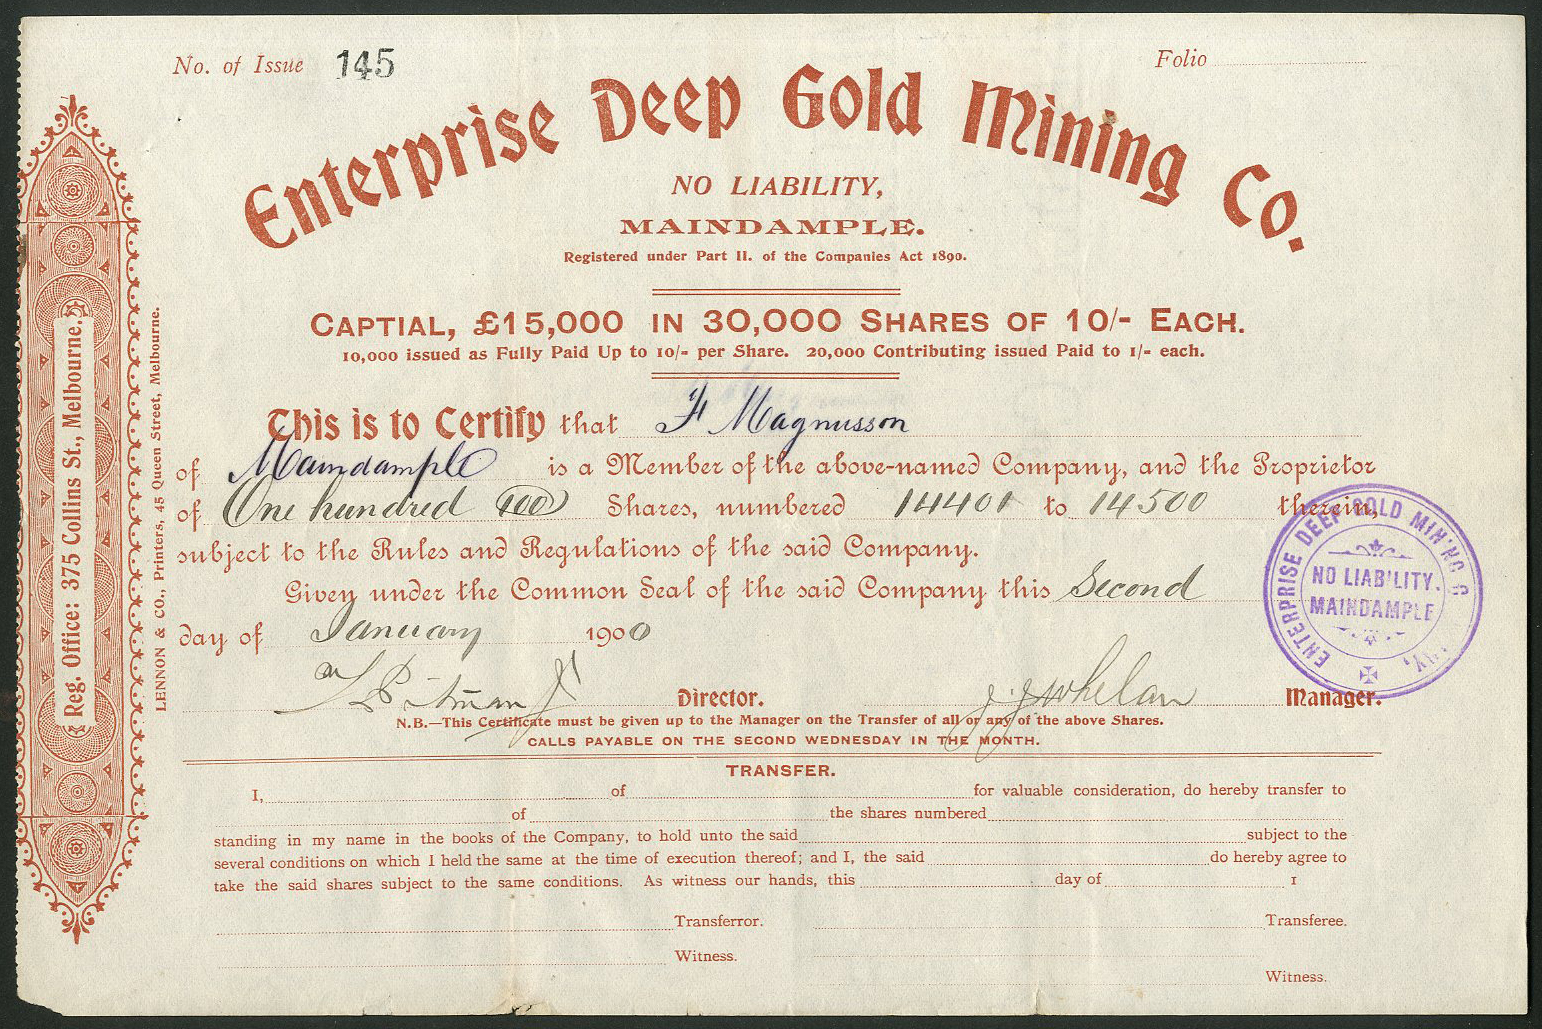 No. of Issue 145
Folio
Enterprise Deep Gold Mining Co.
NO LIABILITY,
MAINDAMPLE.
Registered under Part II. of the Companies Act 1890.
CAPTIAL, £15,000 IN 30,000 SHARES OF 10/- EACH.
10,000 issued as Fully Paid Up to 10/- per Share. 20,000 Contributing issued Paid to 1/- each.
This is to Certify that F Magnusson
of Maindample is a Member of the above-named Company, and the Proprietor
of One hundred (100) Shares, numbered 14401 to 14500 therein,
subject to the Rules and Regulations of the said Company.
Given under the Common Seal of the said Company this Second
day of January 1900
Director. J. J. Whelan Manager.
N.B.—This Certificate must be given up to the Manager on the Transfer of all or any of the above Shares.
CALLS PAYABLE ON THE SECOND WEDNESDAY IN THE MONTH.
TRANSFER.
I, of for valuable consideration, do hereby transfer to
of the shares numbered
standing in my name in the books of the Company, to hold unto the said subject to the
several conditions on which I held the same at the time of execution thereof; and I, the said do hereby agree to
take the said shares subject to the same conditions. As witness our hands, this day of 1
Transferror. Transferee.
Witness.
Witness.
Reg. Office: 375 Collins St., Melbourne.
LENNON & CO., Printers, 45 Queen Street, Melbourne.
ENTERPRISE DEEP GOLD MIN'NG
NO LIAB'LITY.
MAINDAMPLE